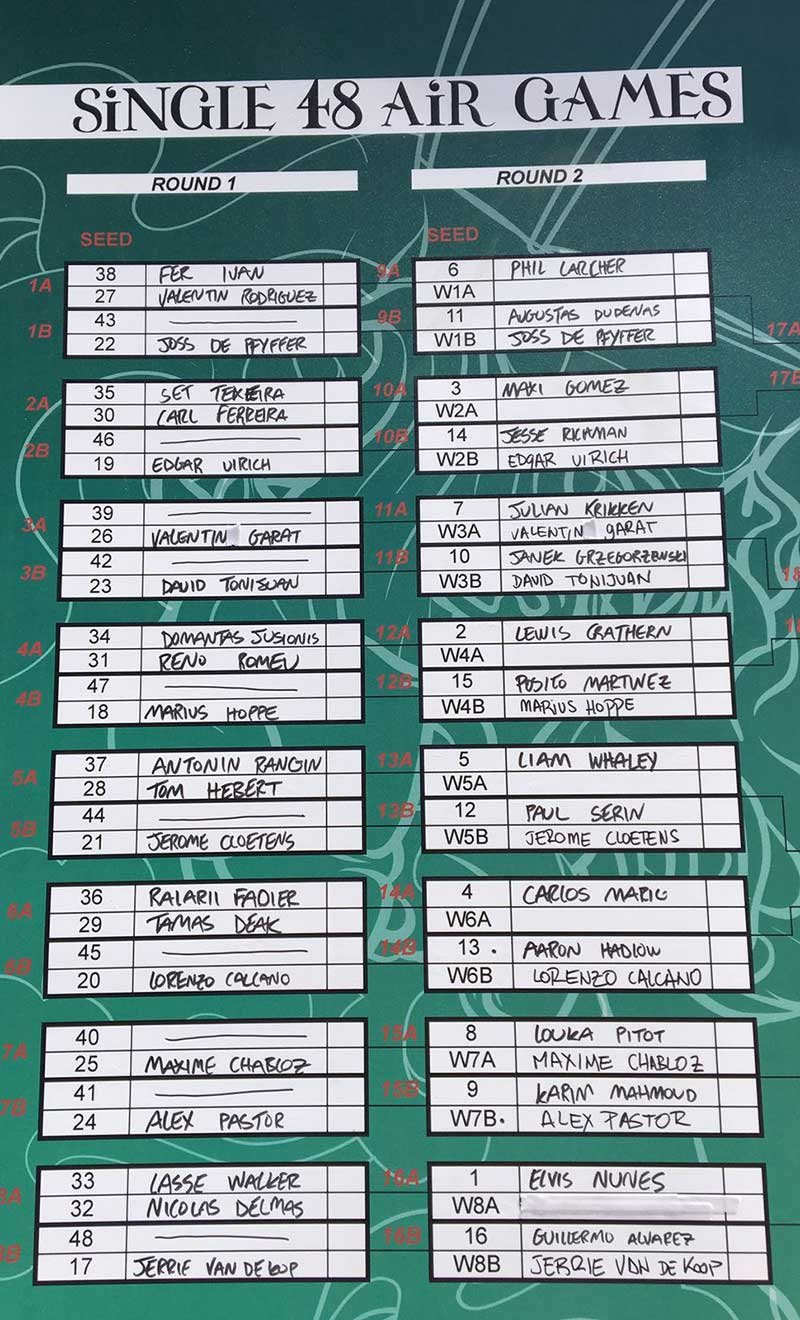 SiNGLE 48 AiR GAMES
ROUND 1
SEED
1A 38 FER IVAN
27 VALENTIN RODRIGUEZ
1B 43
22 JOSS DE PFYFFER
2A 35 SET TEXEIRA
30 CARL FERREIRA
2B 46
19 EDGAR VIRICH
3A 39
26 VALENTIN GARAT
3B 42
23 DAVID TONIJUAN
4A 34 DOMANTAS JUSIONIS
31 RENO ROMEU
4B 47
18 MARIUS HOPPE
5A 37 ANTONIN RANGIN
28 TOM HEBERT
5B 44
21 JEROME CLOETENS
6A 36 RALARII FADIER
29 TAMAS DEAK
6B 45
20 LORENZO CALCANO
7A 40
25 MAXIME CHABLOZ
7B 41
24 ALEX PASTOR
8A 33 LASSE WALKER
32 NICOLAS DELMAS
8B 48
17 JERRIE VAN DE KOOP
ROUND 2
SEED
9A 6 PHIL LARCHER
W1A
9B 11 AUGUSTAS DUDENAS
W1B JOSS DE PFYFFER
17A
10A 3 MAXI GOMEZ
W2A
17B
10B 14 JESSE RICHMAN
W2B EDGAR VIRICH
11A 7 JULIAN KRIKKEN
W3A VALENTIN GARAT
11B 10 JANEK GRZEGORZEWSKI
W3B DAVID TONIJUAN
12A 2 LEWIS CRATHERN
W4A
12B 15 POSITO MARTINEZ
W4B MARIUS HOPPE
13A 5 LIAM WHALEY
W5A
13B 12 PAUL SERIN
W5B JEROME CLOETENS
14A 4 CARLOS MARIO
W6A
14B 13. AARON HADLOW
W6B LORENZO CALCANO
15A 8 LOUKA PITOT
W7A MAXIME CHABLOZ
15B 9 KARIM MAHMOUD
W7B. ALEX PASTOR
16A 1 ELVIS NUNES
W8A
16B 16 GUILLERMO ALVAREZ
W8B JERRIE VAN DE KOOP